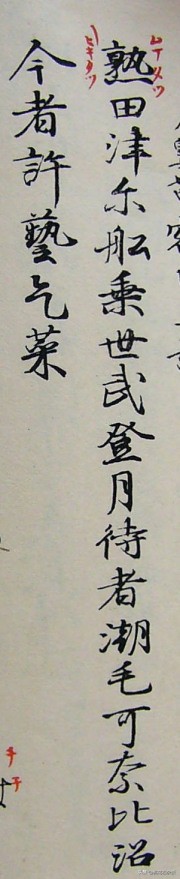 熟田津尓船乗世武登月待者潮毛可奈比沼
今者許藝乞菜